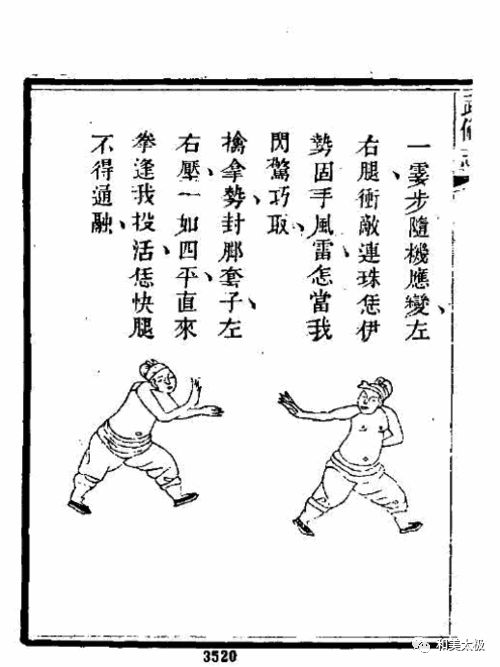 武備志
一霎步隨機應變、左
右腿、衝敵連珠恁伊
勢固手風雷、怎當我
閃驚巧取、
擒拿勢、封脚套子、左
右壓、一如四平、直來
拳逢我投活、恁快腿
不得通融、
3520
和美太极